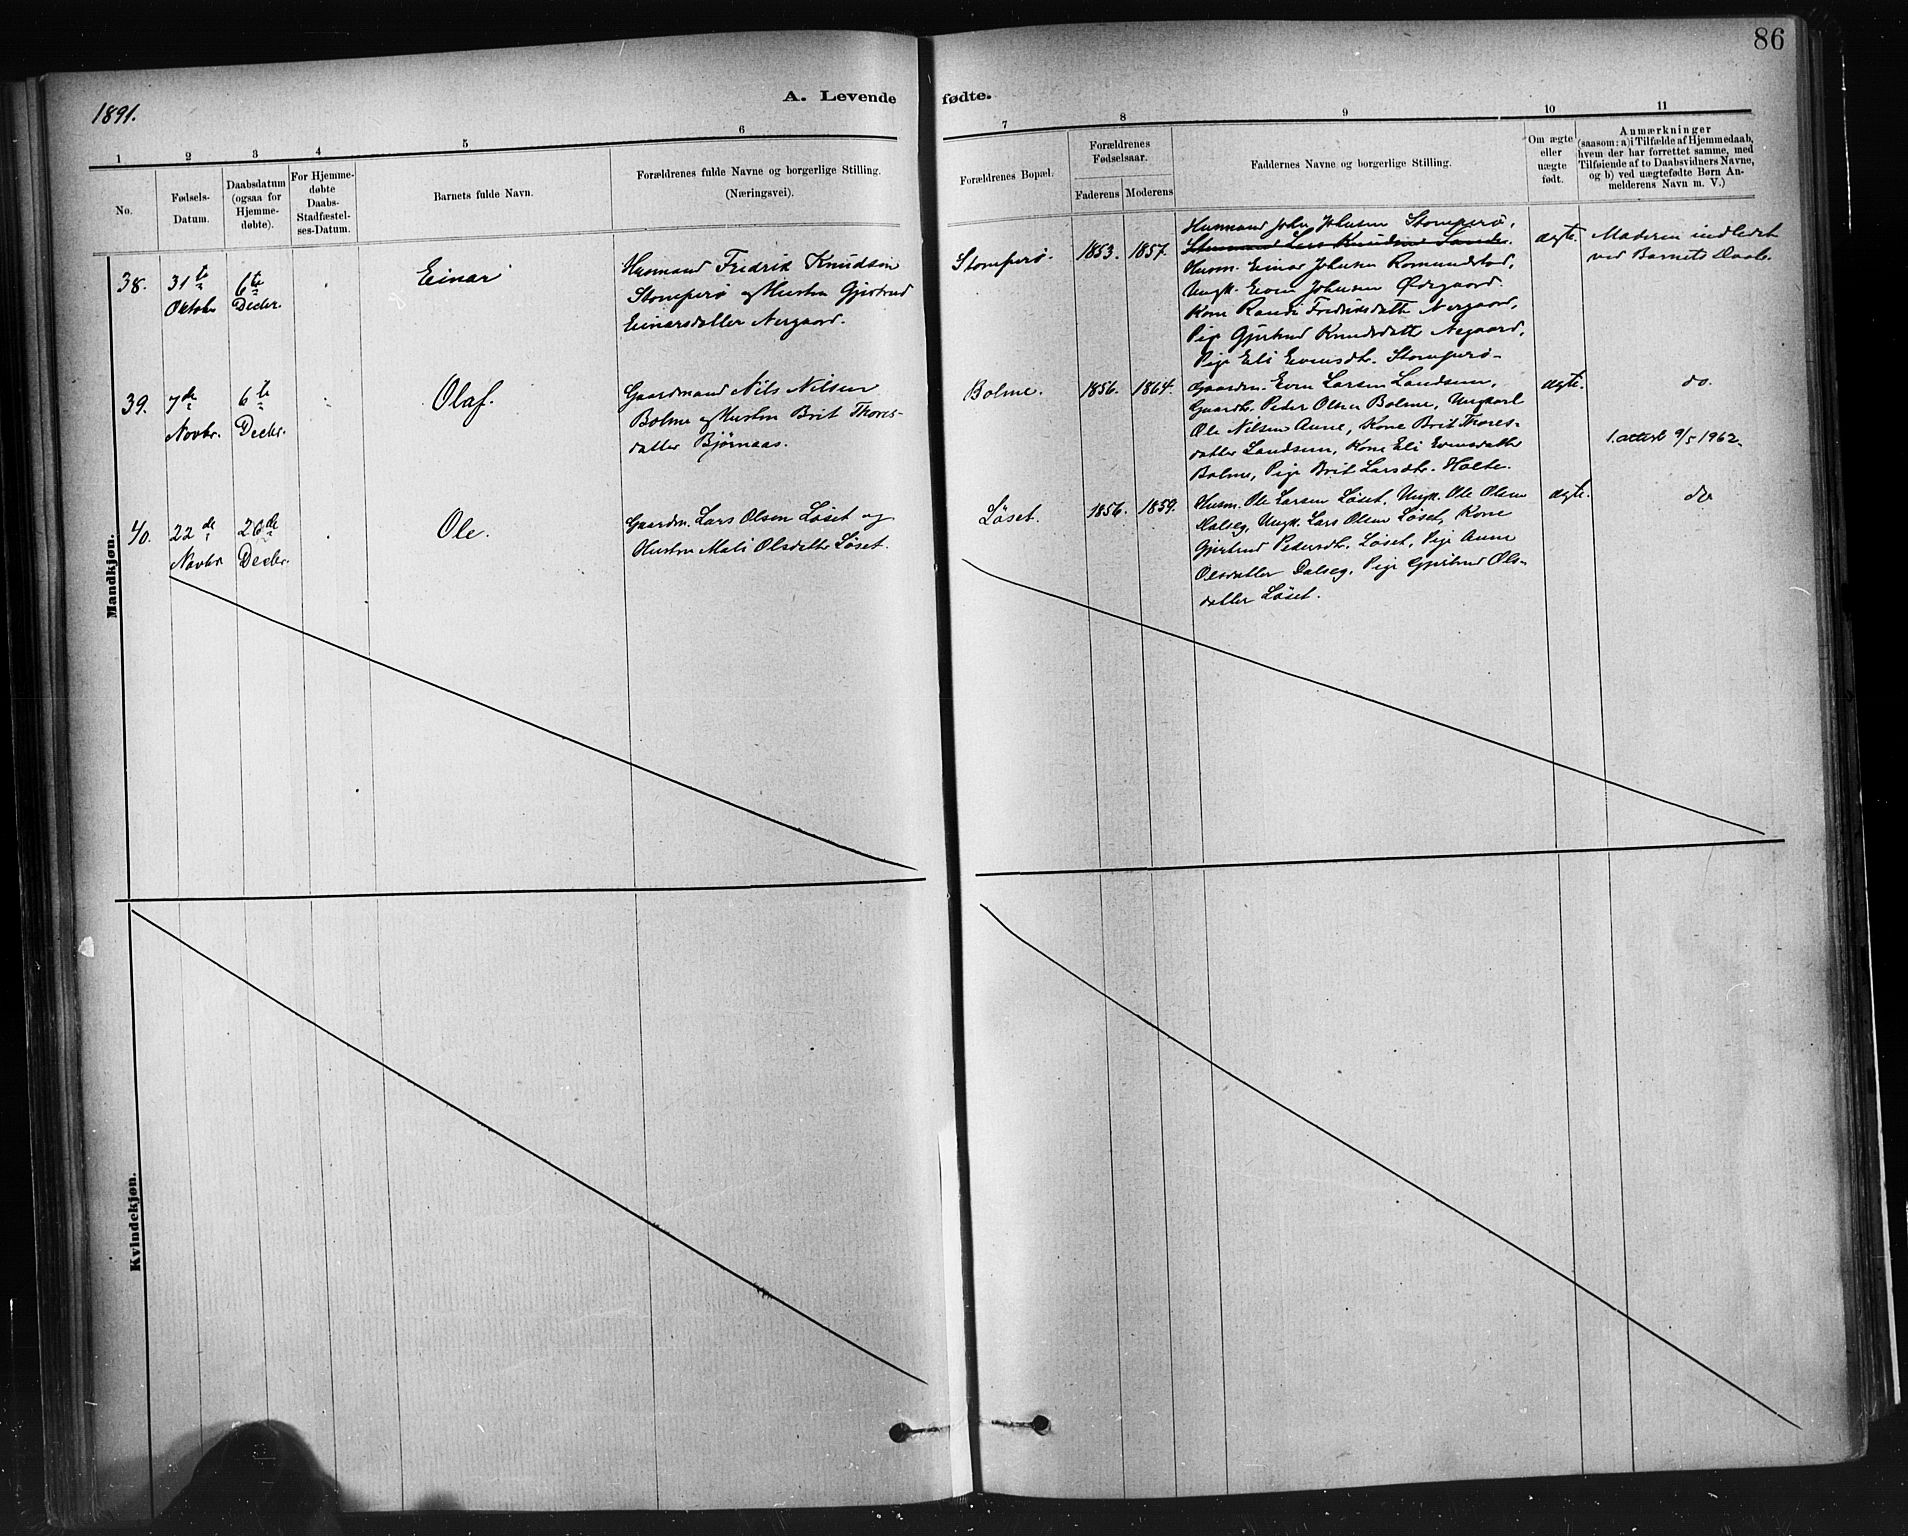 86
1891.
A. Levende fødte.
1 2 3 4 5 6 7 8 9 10 11
No.
Fødsels-
Datum.
Daabsdatum
(ogsaa for
Hjemme-
døbte).
For Hjemme-
døbte
Daabs-
Stadfæstel-
ses-Datum.
Barnets fulde Navn.
Forældrenes fulde Navne og borgerlige Stilling.
(Næringsvei).
Forældrenes Bopæl.
Forældrenes
Fødselsaar.
Faderens Moderens
Faddernes Navne og borgerlige Stilling.
Om ægte
eller
uægte
født.
Anmærkninger
(saasom: a) i Tilfælde af Hjemmedaab,
hvem der har forrettet samme, med
Tilføiende af to Daabsvidners Navne,
og b) ved uægtefødte Børn An-
melderens Navn m. V.)
Mandkjøn.
38.
31te
Oktober
6te
Decbr.
Einar
Husmand Fredrik Knudsen
Stomperø og Hustru Gjertrud
Einarsdatter Nergaard.
Stomperø.
1853. 1857.
Husmand John Johnsen Stomperø,
Husmand Lars Knudsen
Husm. Einar Johnsen Romundstad,
Ungk. Even Johnsen Ødegaard
Kone Randi Fredriksdatter Nergaard,
Pige Gjertrud Knudsdatter Negaard,
Pige Eli Evensdtr. Stomperø.
ægte.
Moderen indledet
ved Barnets Daab.
39.
7de
Novbr.
6te
Decbr.
Olaf.
Gaardmand Nils Nilsen
Bolme og Hustru Brit Thores-
datter Bjørnaas.
Bolme.
1856. 1864.
Gaardm. Even Larsen Landsem,
Gaardbr. Peder Olsen Bolme, Ungkarl
Ole Nilsen Aune, Kone Brit Thores-
datter Landsem, Kone Eli Evensdatter
Bolme, Pige Brit Larsdtr. Holte.
ægte.
do.
1. attest 9/5 1962.
40.
22de
Novbr
26de
Decbr.
Ole.
Gaardm. Lars Olsen Løset og
Hustru Mali Olsdatter Løset.
Løset.
1856. 1859.
Husm. Ole Larsen Løset, Ungk. Ole Olsen
Dalseg, Ungk. Lars Olsen Løset, Kone
Gjertrud Pedersdtr. Løset, Pige Anne
Olsdatter Dalseg, Pige Gjertrud Ols-
datter Løset.
ægte.
do
Kvindekjøn.